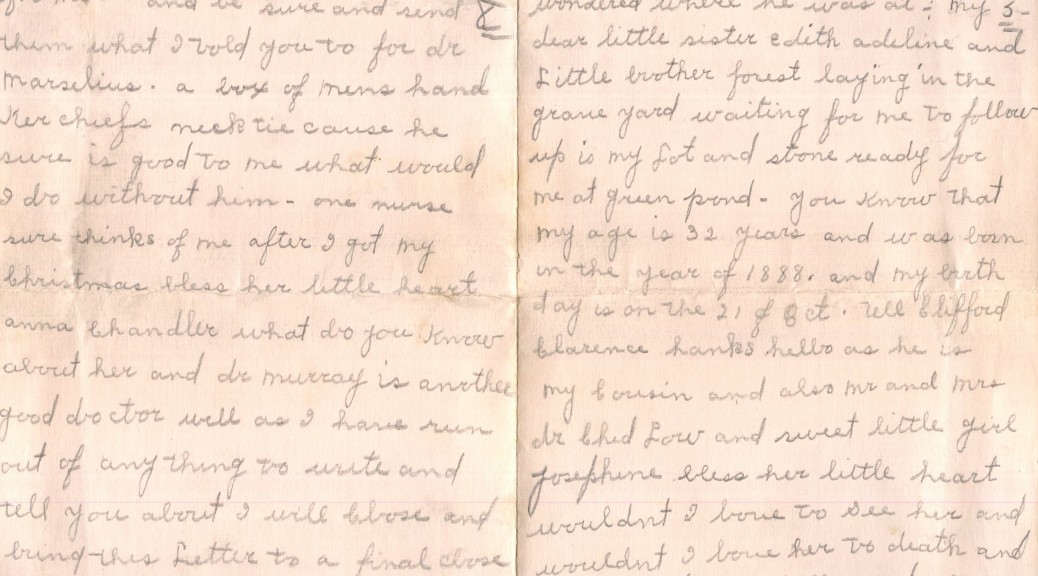 and be sure and send 8
them what I told you to for dr
marselius. a box of mens hand
Ker chiefs neck tie cause he
sure is good to me what would
I do without him - one nurse
sure thinks of me after I got my
Christmas bless her little heart
anna Chandler what do you know
about her and dr murray is another
good doctor well as I have run
out of any thing to write and
tell you about I will Close and
bring this Letter to a final close
wondered where he was at: my 5-
dear little sister edith adeline and
Little brother forest laying in the
grave yard waiting for me to follow
up is my Lot and stone ready for
me at green pond - you know that
my age is 32 years and was born
in the year of 1888. and my birth
day is on the 21 of Oct. tell Clifford
Clarence hanks hello as he is
my Cousin and also mr and mrs
dr Ched Low and sweet little girl
josephine bless her little heart
wouldnt I love to see her and
wouldnt I love her to death and